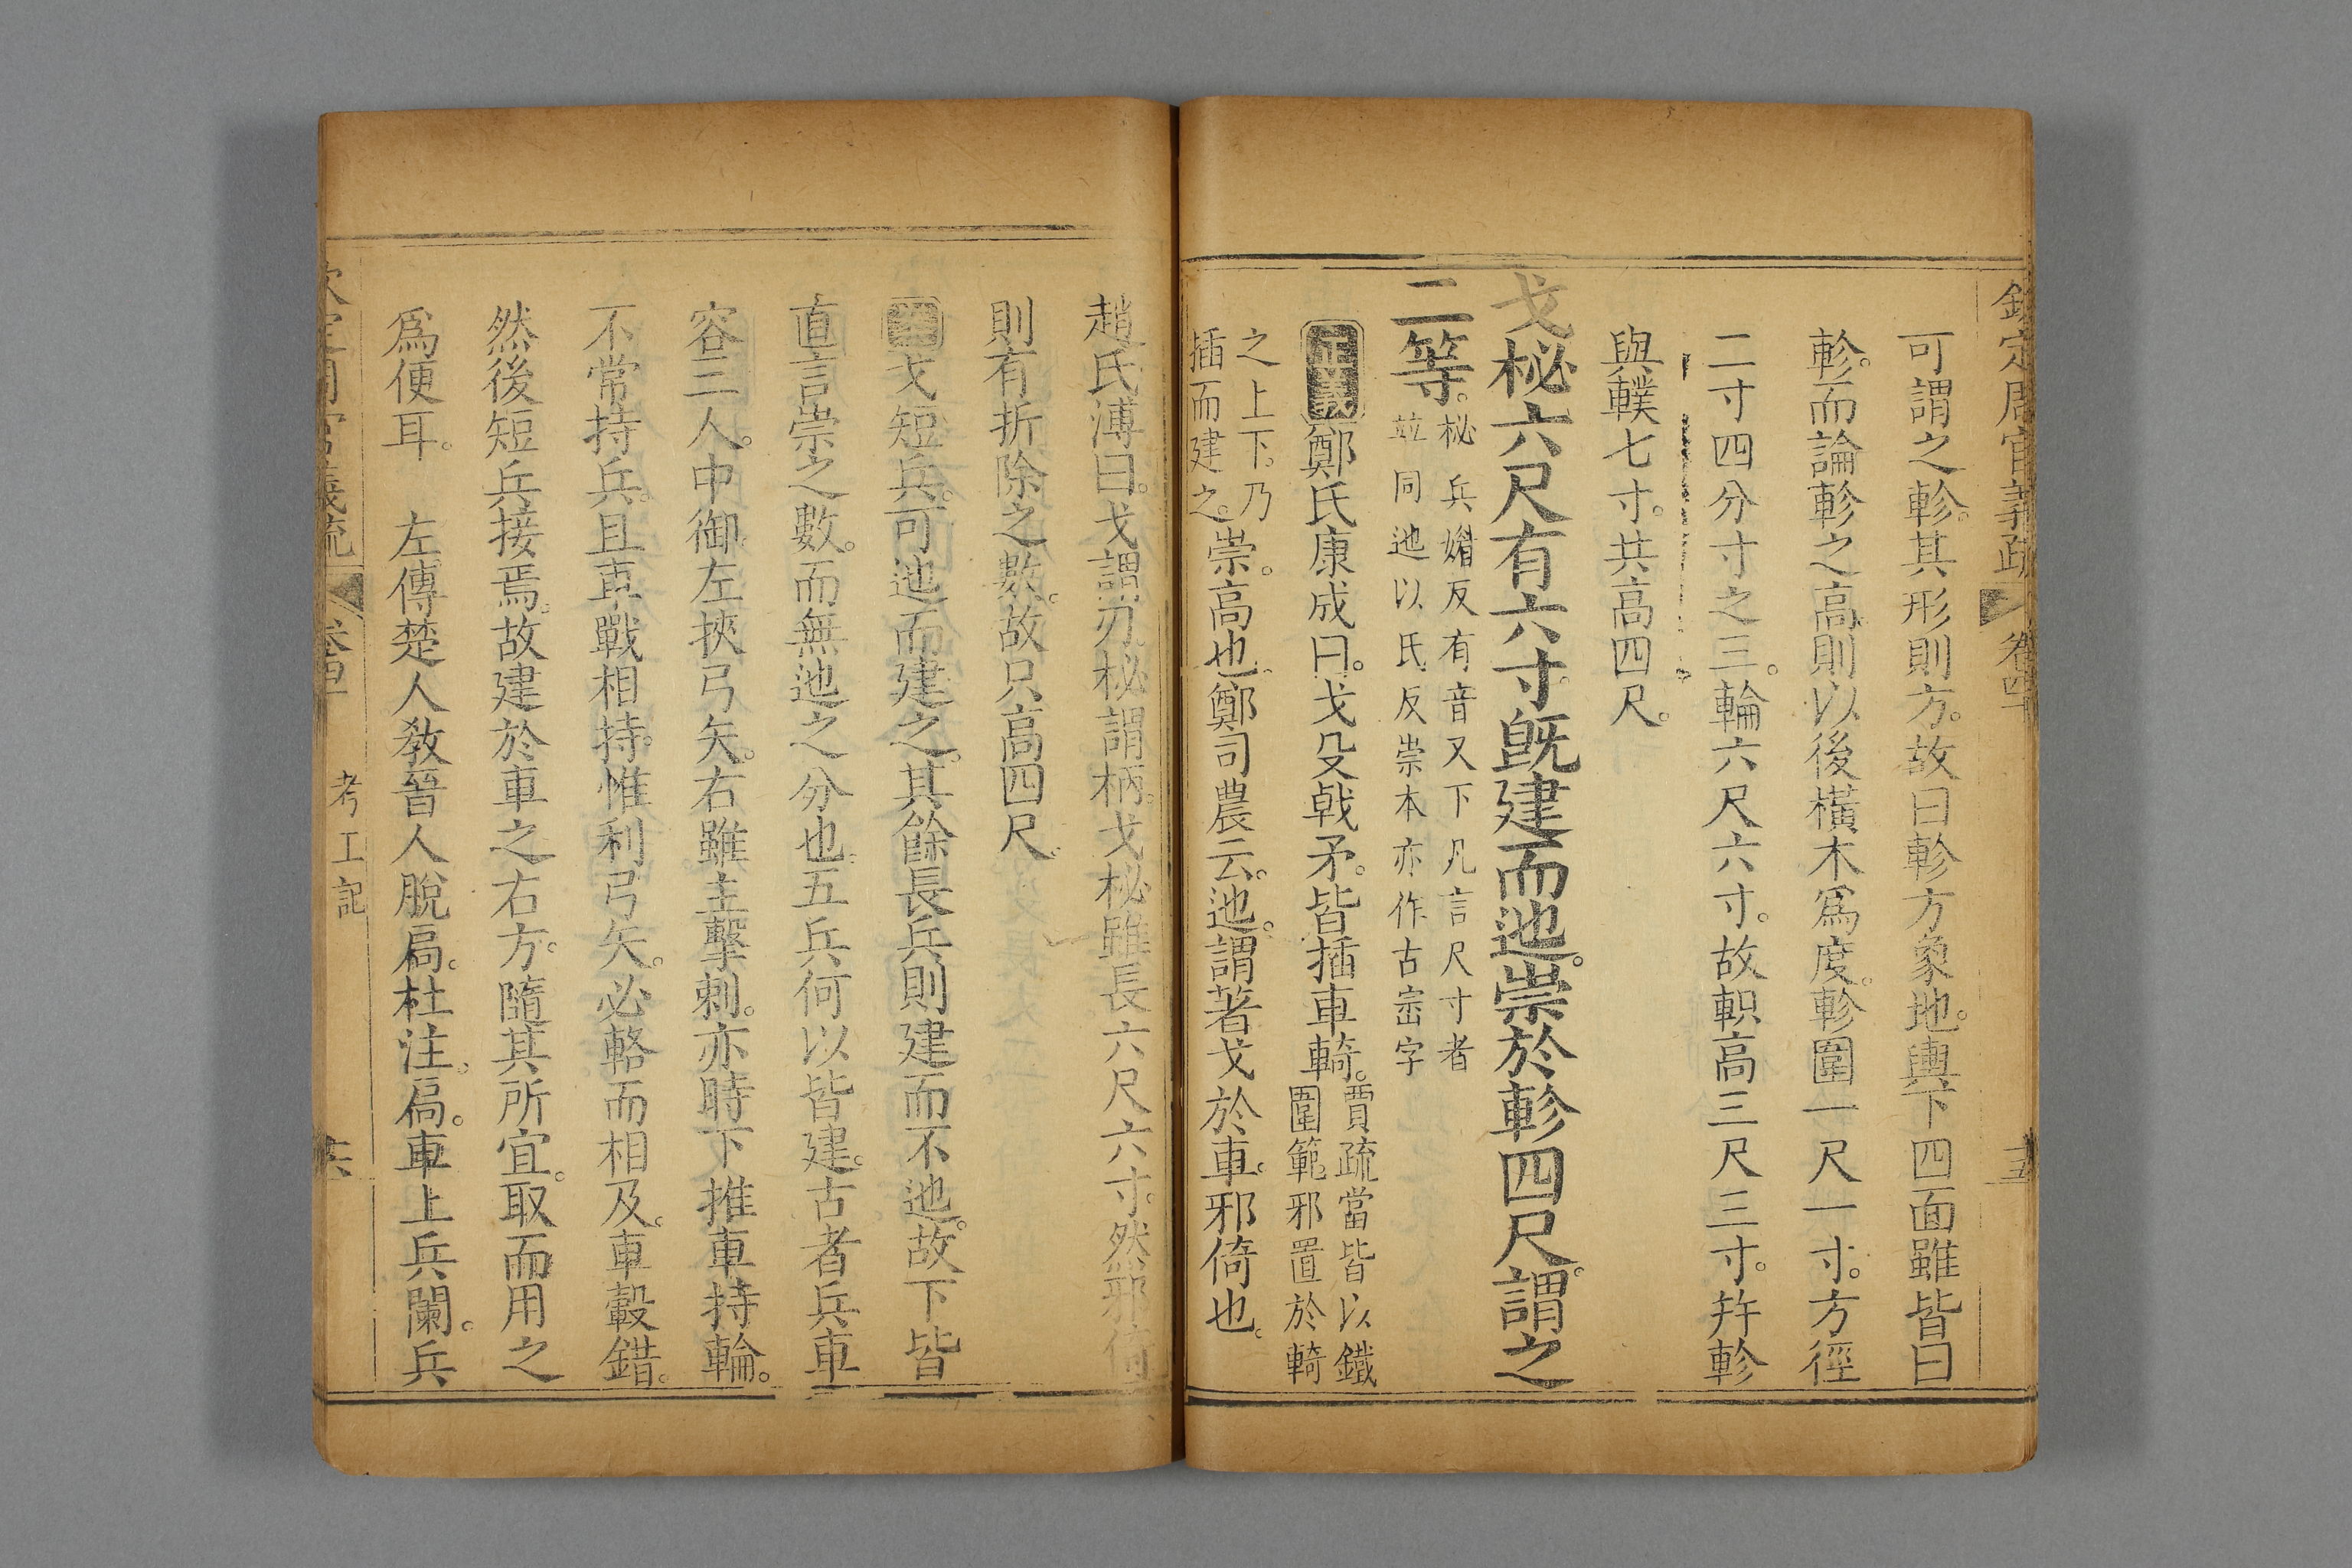 欽定周官義疏 卷四 十五
可謂之軫。其形則方。故曰軫方象地。輿下四面雖皆曰
軫。而論軫之高。則以後橫木爲度。軫圍一尺一寸。方徑
二寸四分寸之三。輪六尺六寸。故軹高三尺三寸。幷軫
與轐七寸。共高四尺。
戈柲六尺有六寸。旣建而迆。崇於軫四尺。謂之
二等。
柲兵媚反有音又下凡言尺寸者
竝同迆以氏反崇本亦作古崈字
正義鄭氏康成曰。戈殳戟矛。皆插車輢。
賈疏當皆以鐵
圍範。邪置於輢
之上下。乃
插而建之。
崇。高也。鄭司農云。迆。謂著戈於車。邪倚也。
趙氏溥曰。戈謂刃。柲謂柄。戈柲雖長六尺六寸。然邪倚
則有折除之數。故只高四尺。
戈短兵。可迆而建之。其餘長兵則建而不迆。故下皆
直言崇之數。而無迆之分也。五兵何以皆建。古者兵車
容三人。中御。左挾弓矢。右雖主擊刺。亦時下推車持輪。
不常持兵。且車戰相持。惟利弓矢。必輅而相及。車轂錯。
然後短兵接焉。故建於車之右方。隨其所宜。取而用之
爲便耳。 左傳楚人敎晉人脫扃。杜注。扃。車上兵闌。兵
欽定周官義疏 考工記 十六